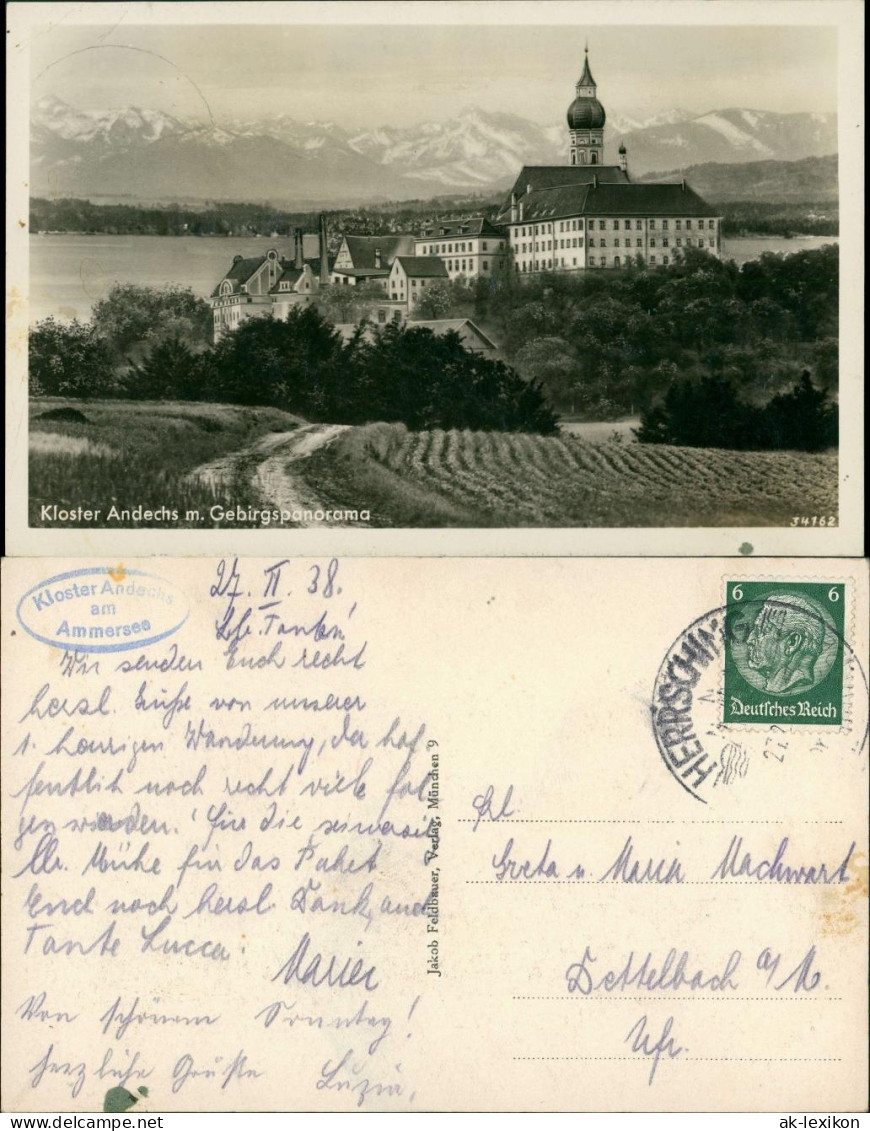 Kloster Andechs m. Gebirgspanorama
34162
Kloster Andechs
am
Ammersee
27. II. 38.
Wir senden Euch recht
herzl. Grüße von unserer
1. heurigen Wanderung, der hof
fentlich noch recht viele fol
gen werden. Für die
Mühe für das Paket
Euch noch herzl. Dank, auch
Tante Lucca.
Marie
Von schönem Sonntag!
herzliche Grüße Luzia,
Jakob Feldbauer, Verlag, München 9
6 6
Deutsches Reich
HERRSCHING
Frl.
Greta u. Maria Machwart
Dettelbach a/M.
Ufr.
ak-lexikon